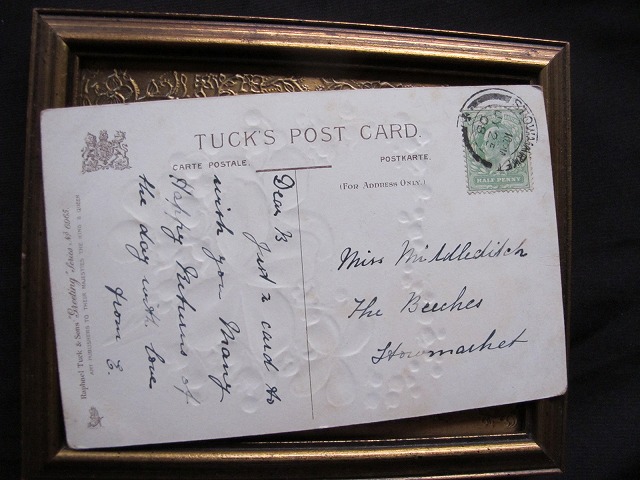 TUCK'S POST CARD.
CARTE POSTALE.
POSTKARTE.
(FOR ADDRESS ONLY.)
HALF PENNY
STOWMARKET
Dear B
Just a card to
wish you Many
Happy Returns of
the day with love
from E.
Miss Middleditch
The Beeches
Stowmarket
Raphael Tuck & Sons' "Greeting" Series
ART PUBLISHERS TO THEIR MAJESTIES THE KING & QUEEN